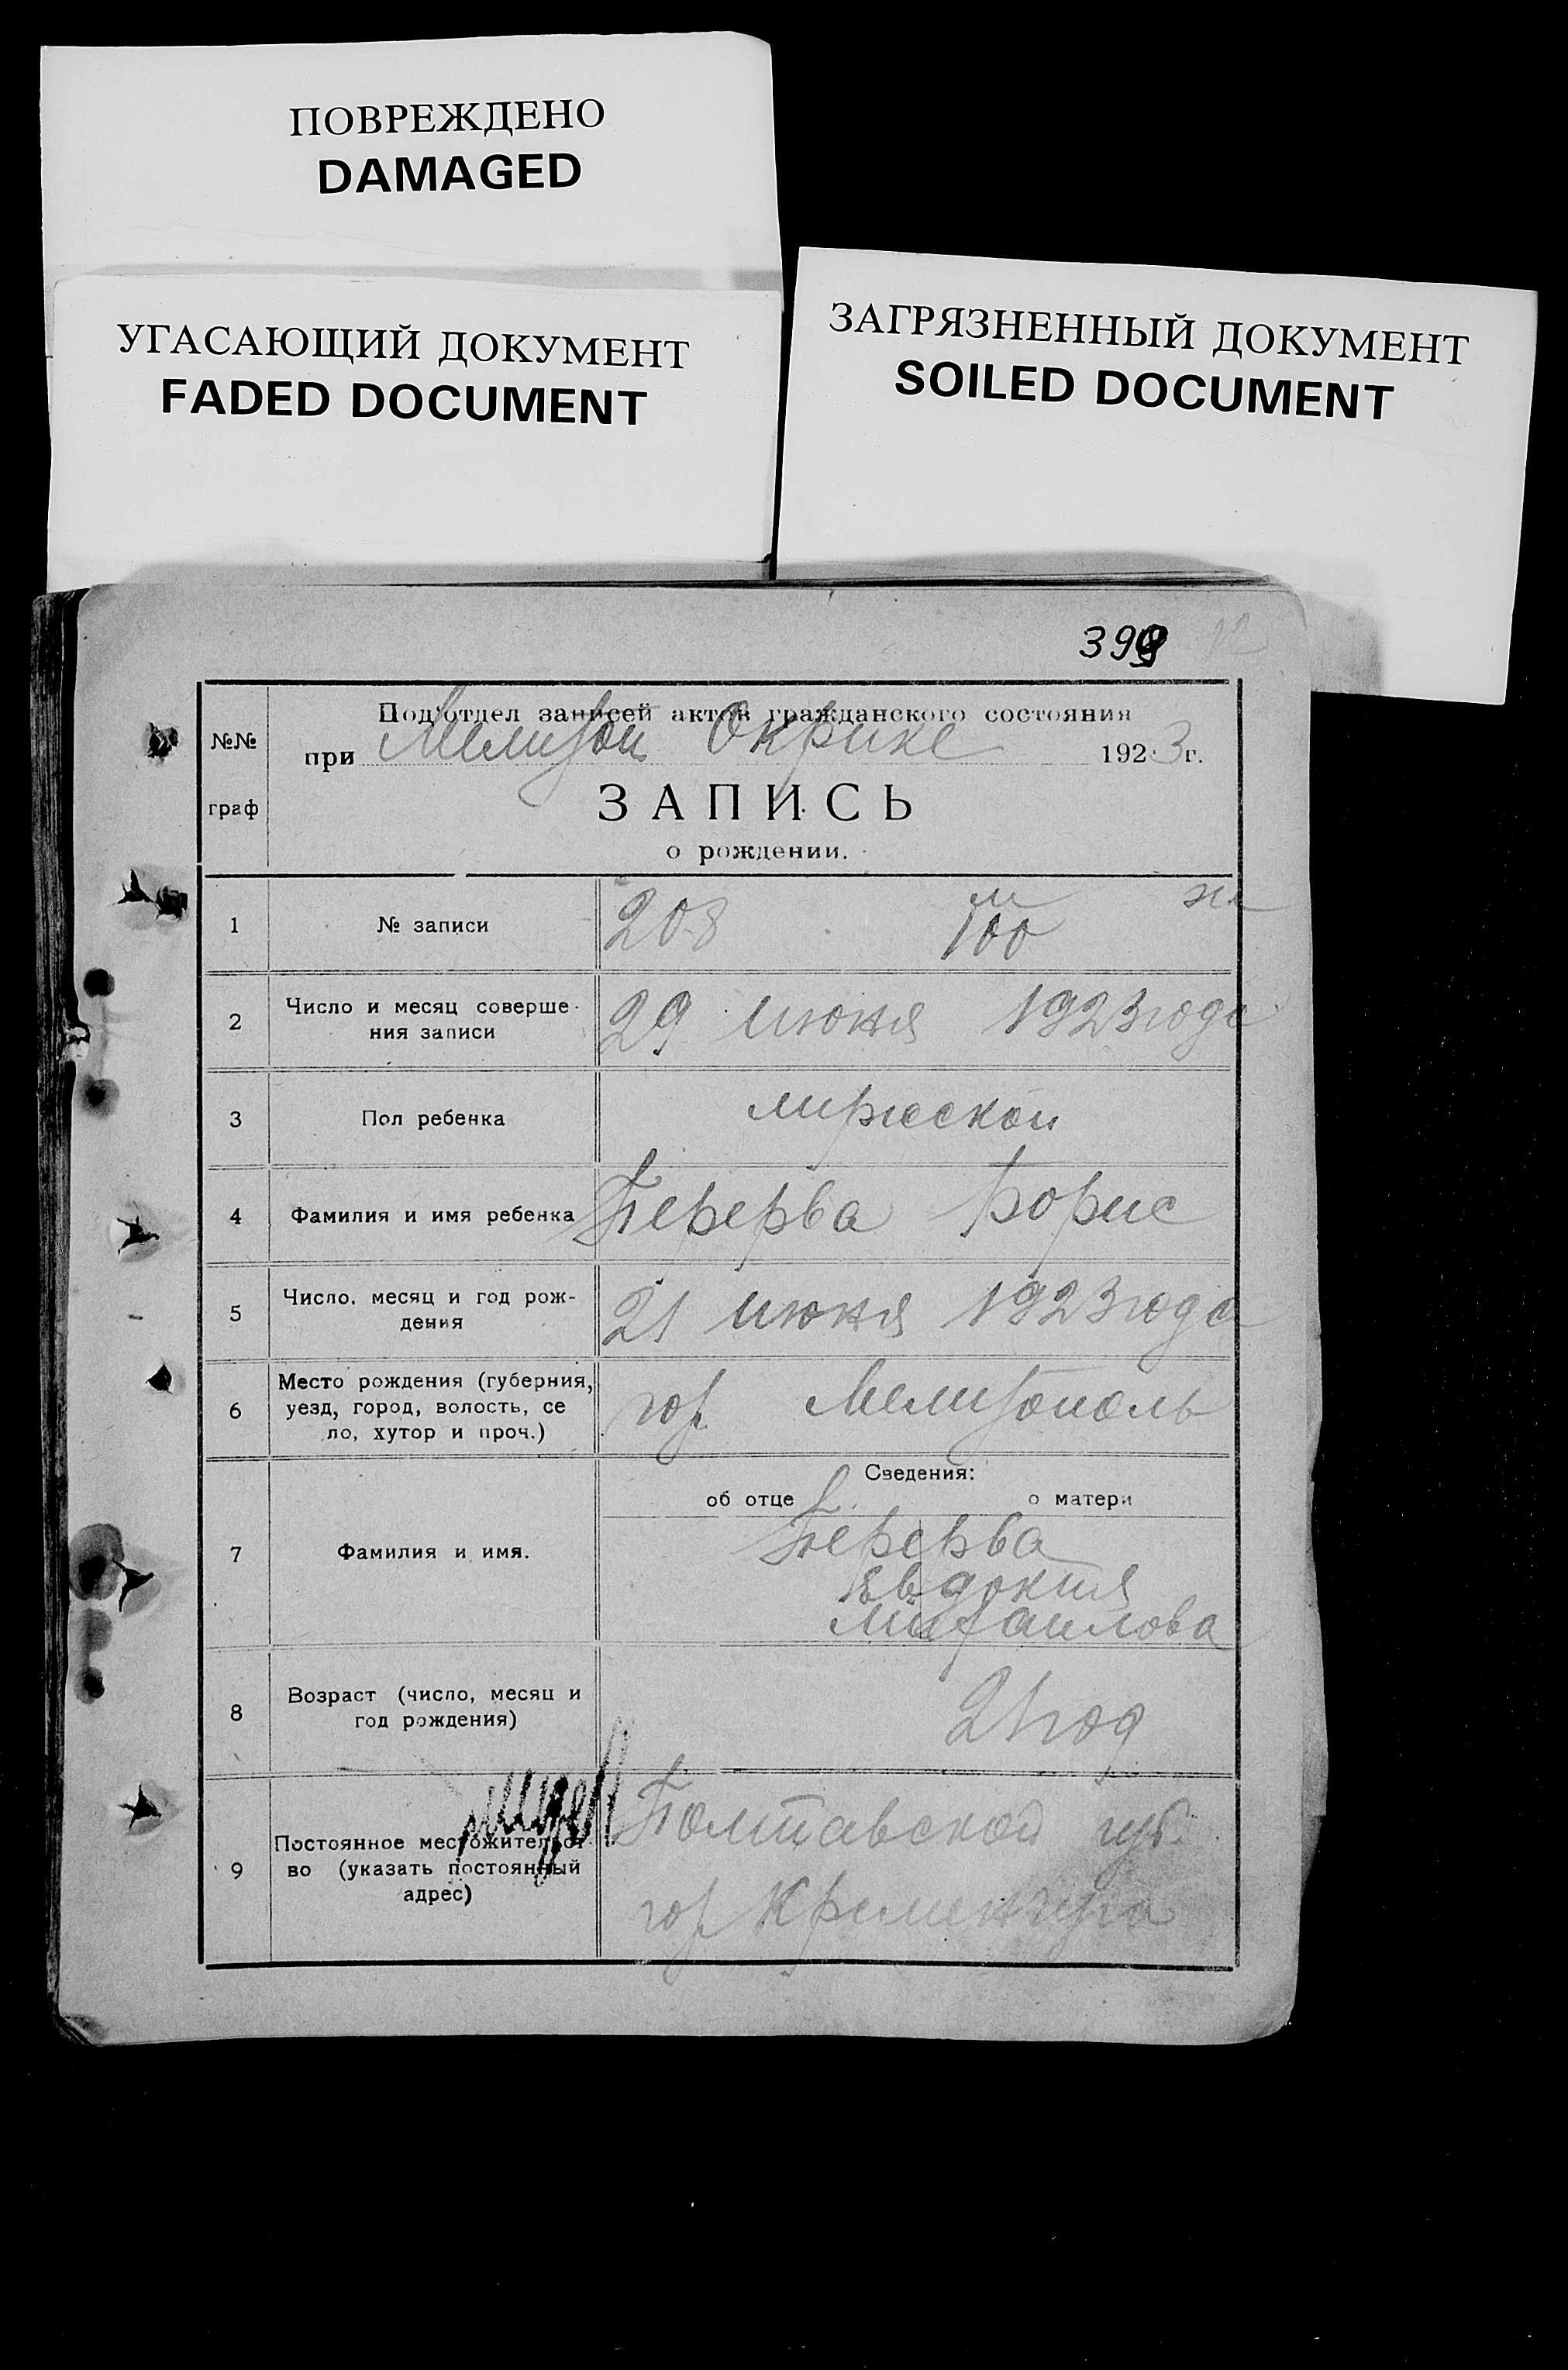 ПОВРЕЖДЕНО
DAMAGED
УГАСАЮЩИЙ ДОКУМЕНТ
FADED DOCUMENT
ЗАГРЯЗНЕННЫЙ ДОКУМЕНТ
SOILED DOCUMENT
399
№№ граф
Под'отдел записей актов гражданского состояния
при Мелитоп Окрике 1923 г.
ЗАПИСЬ
о рождении.
1 № записи 208 м 100 ж
2 Число и месяц соверше-
ния записи 29 июня 1923 года
3 Пол ребенка мужской
4 Фамилия и имя ребенка Перерва Борис
5 Число, месяц и год рож-
дения 21 июня 1923 года
6 Место рождения (губерния,
уезд, город, волость, се
ло, хутор и проч.) гор Мелитополь
Сведения:
об отце о матери
7 Фамилия и имя. Перерва
Евдокия
Михайлова
8 Возраст (число, месяц и
год рождения) 21 год
9 Постоянное местожительст-
во (указать постоянный
адрес) Полтавской губ.
гор Кременчуга